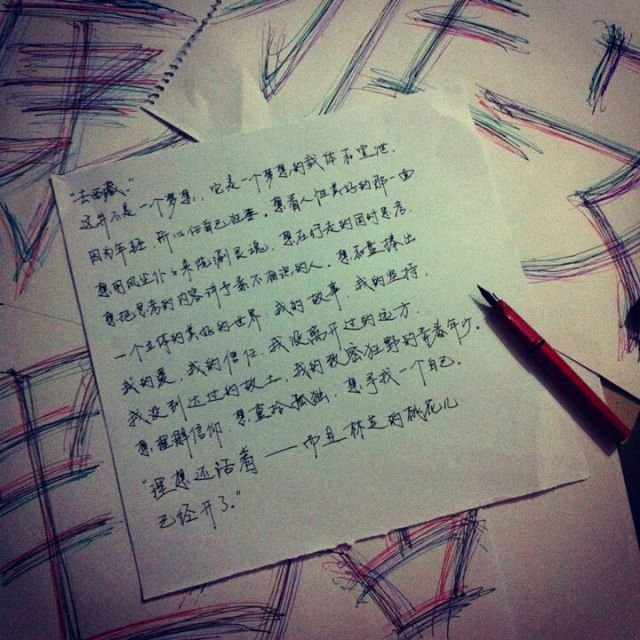 "去西藏."
这并不是一个梦想，它是一个梦想的载体和宣泄.
因为年轻 所以任自己狂妄。想看人性美好的那一面
想用风尘仆仆来洗涮灵魂，想在行走的同时思考.
想把思考的内容讲予素不相识的人，想
一个立体的美好的世界，我的故事，我的坚持，
我的爱，我的信任，我没离开过的远方，
我没到达过的故土，我的敏感狂野的青春年少。
想理解信仰，想重拾孤独，想寻找一个自己.
"理想还活着 —— 而且林芝的桃花儿
已经开了."